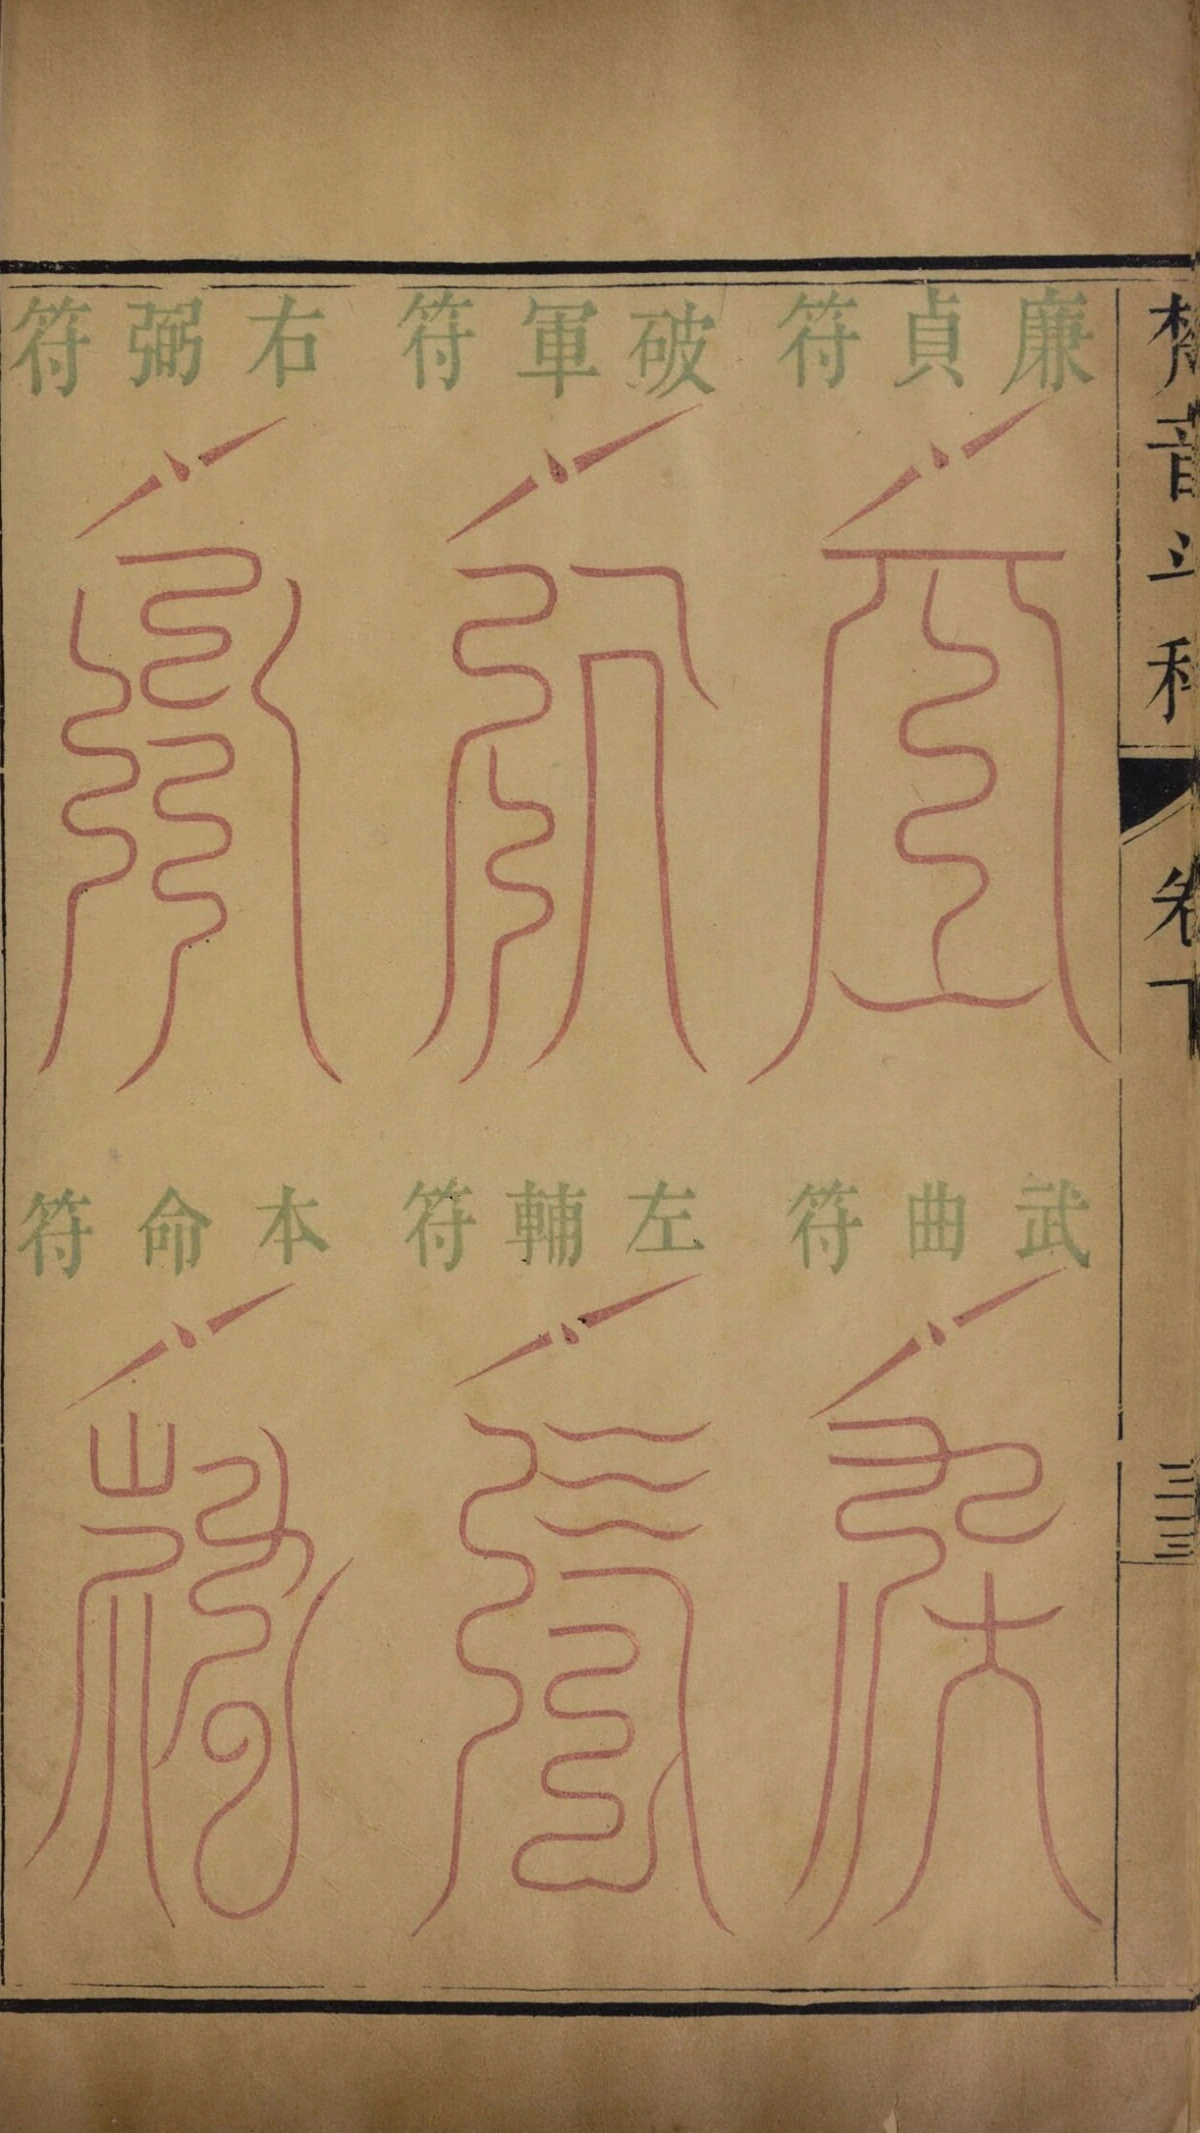 梵音斗科
卷下
三十三
廉貞符
武曲符
破軍符
左輔符
右弼符
本命符